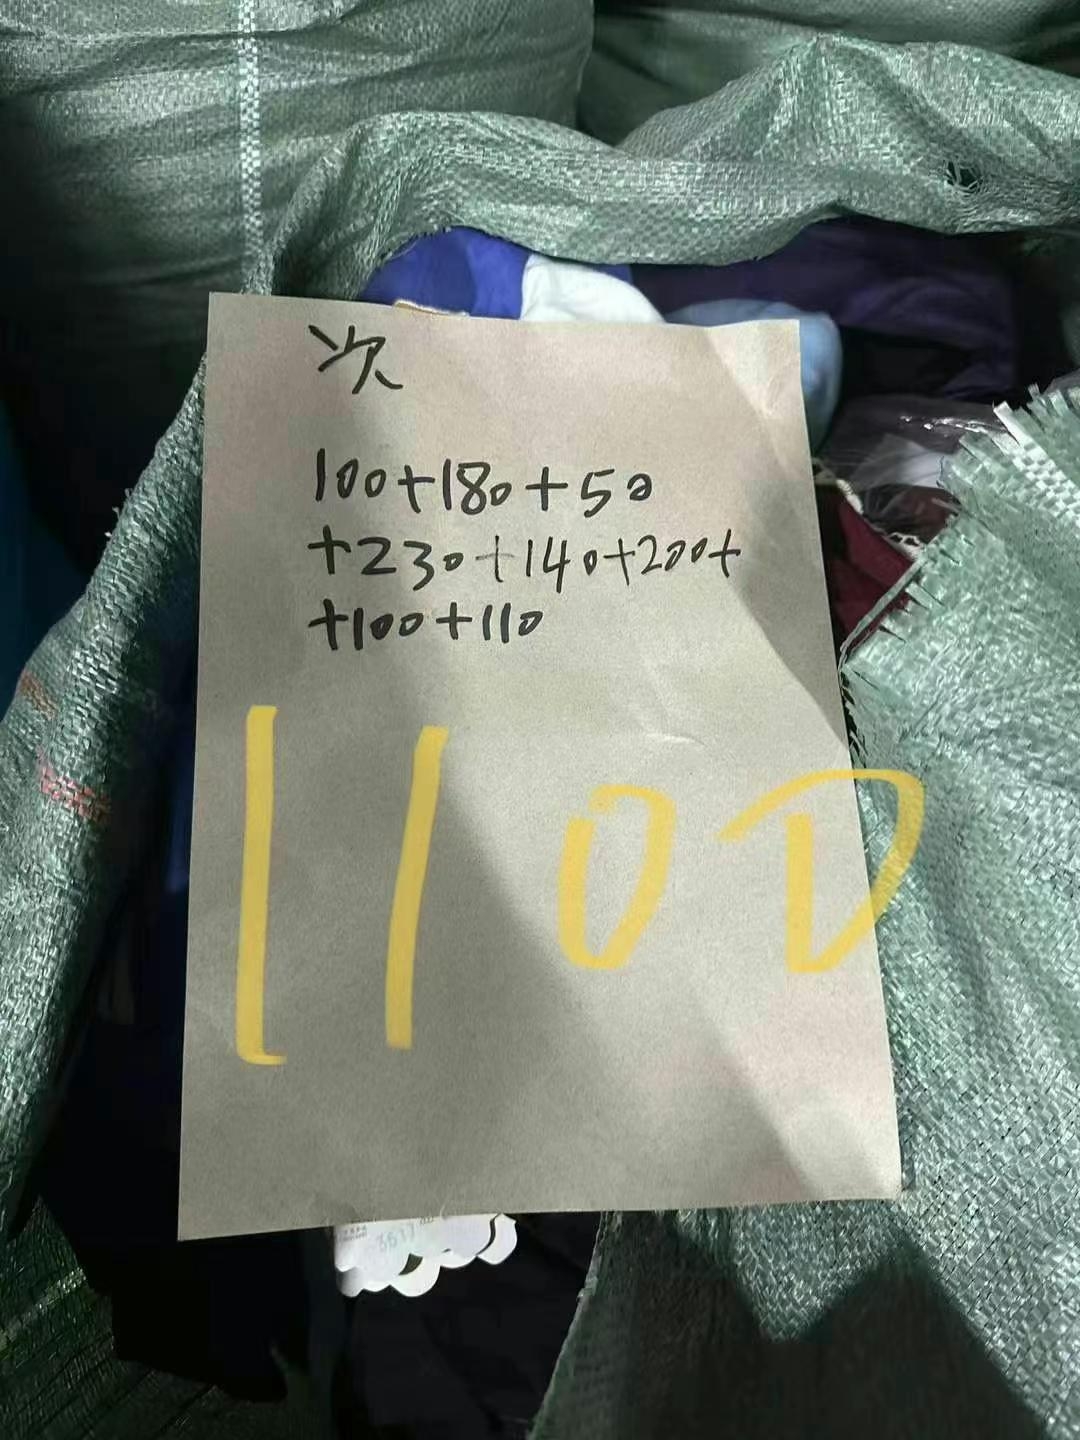 次
100+180+50
+230+140+200+
+100+110
1100
3617